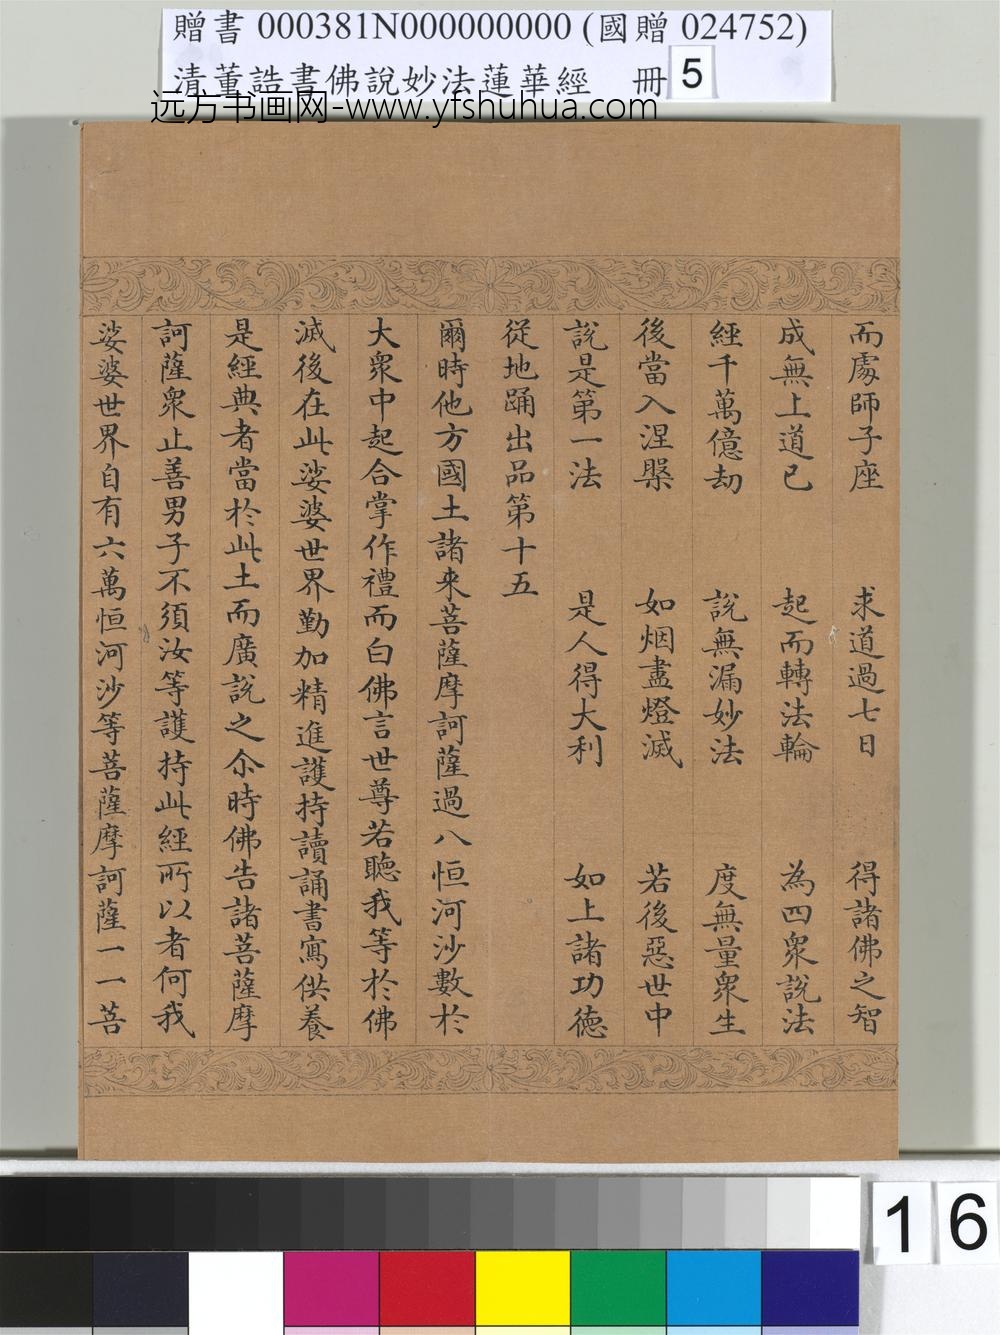 贈書 000381N000000000 (國贈 024752)
清董誥書佛說妙法蓮華經 冊 5
远方书画网-www.yfshuhua.com
而處師子座 求道過七日 得諸佛之智
成無上道已 起而轉法輪 為四衆說法
經千萬億劫 說無漏妙法 度無量衆生
後當入涅槃 如烟盡燈滅 若後惡世中
說是第一法 是人得大利 如上諸功德
從地踊出品第十五
爾時他方國土諸来菩薩摩訶薩過八恒河沙數於
大衆中起合掌作禮而白佛言世尊若聽我等於佛
滅後在此娑婆世界勤加精進護持讀誦書寫供養
是經典者當於此土而廣說之尒時佛告諸菩薩摩
訶薩衆止善男子不須汝等護持此經所以者何我
娑婆世界自有六萬恒河沙等菩薩摩訶薩一一菩
16